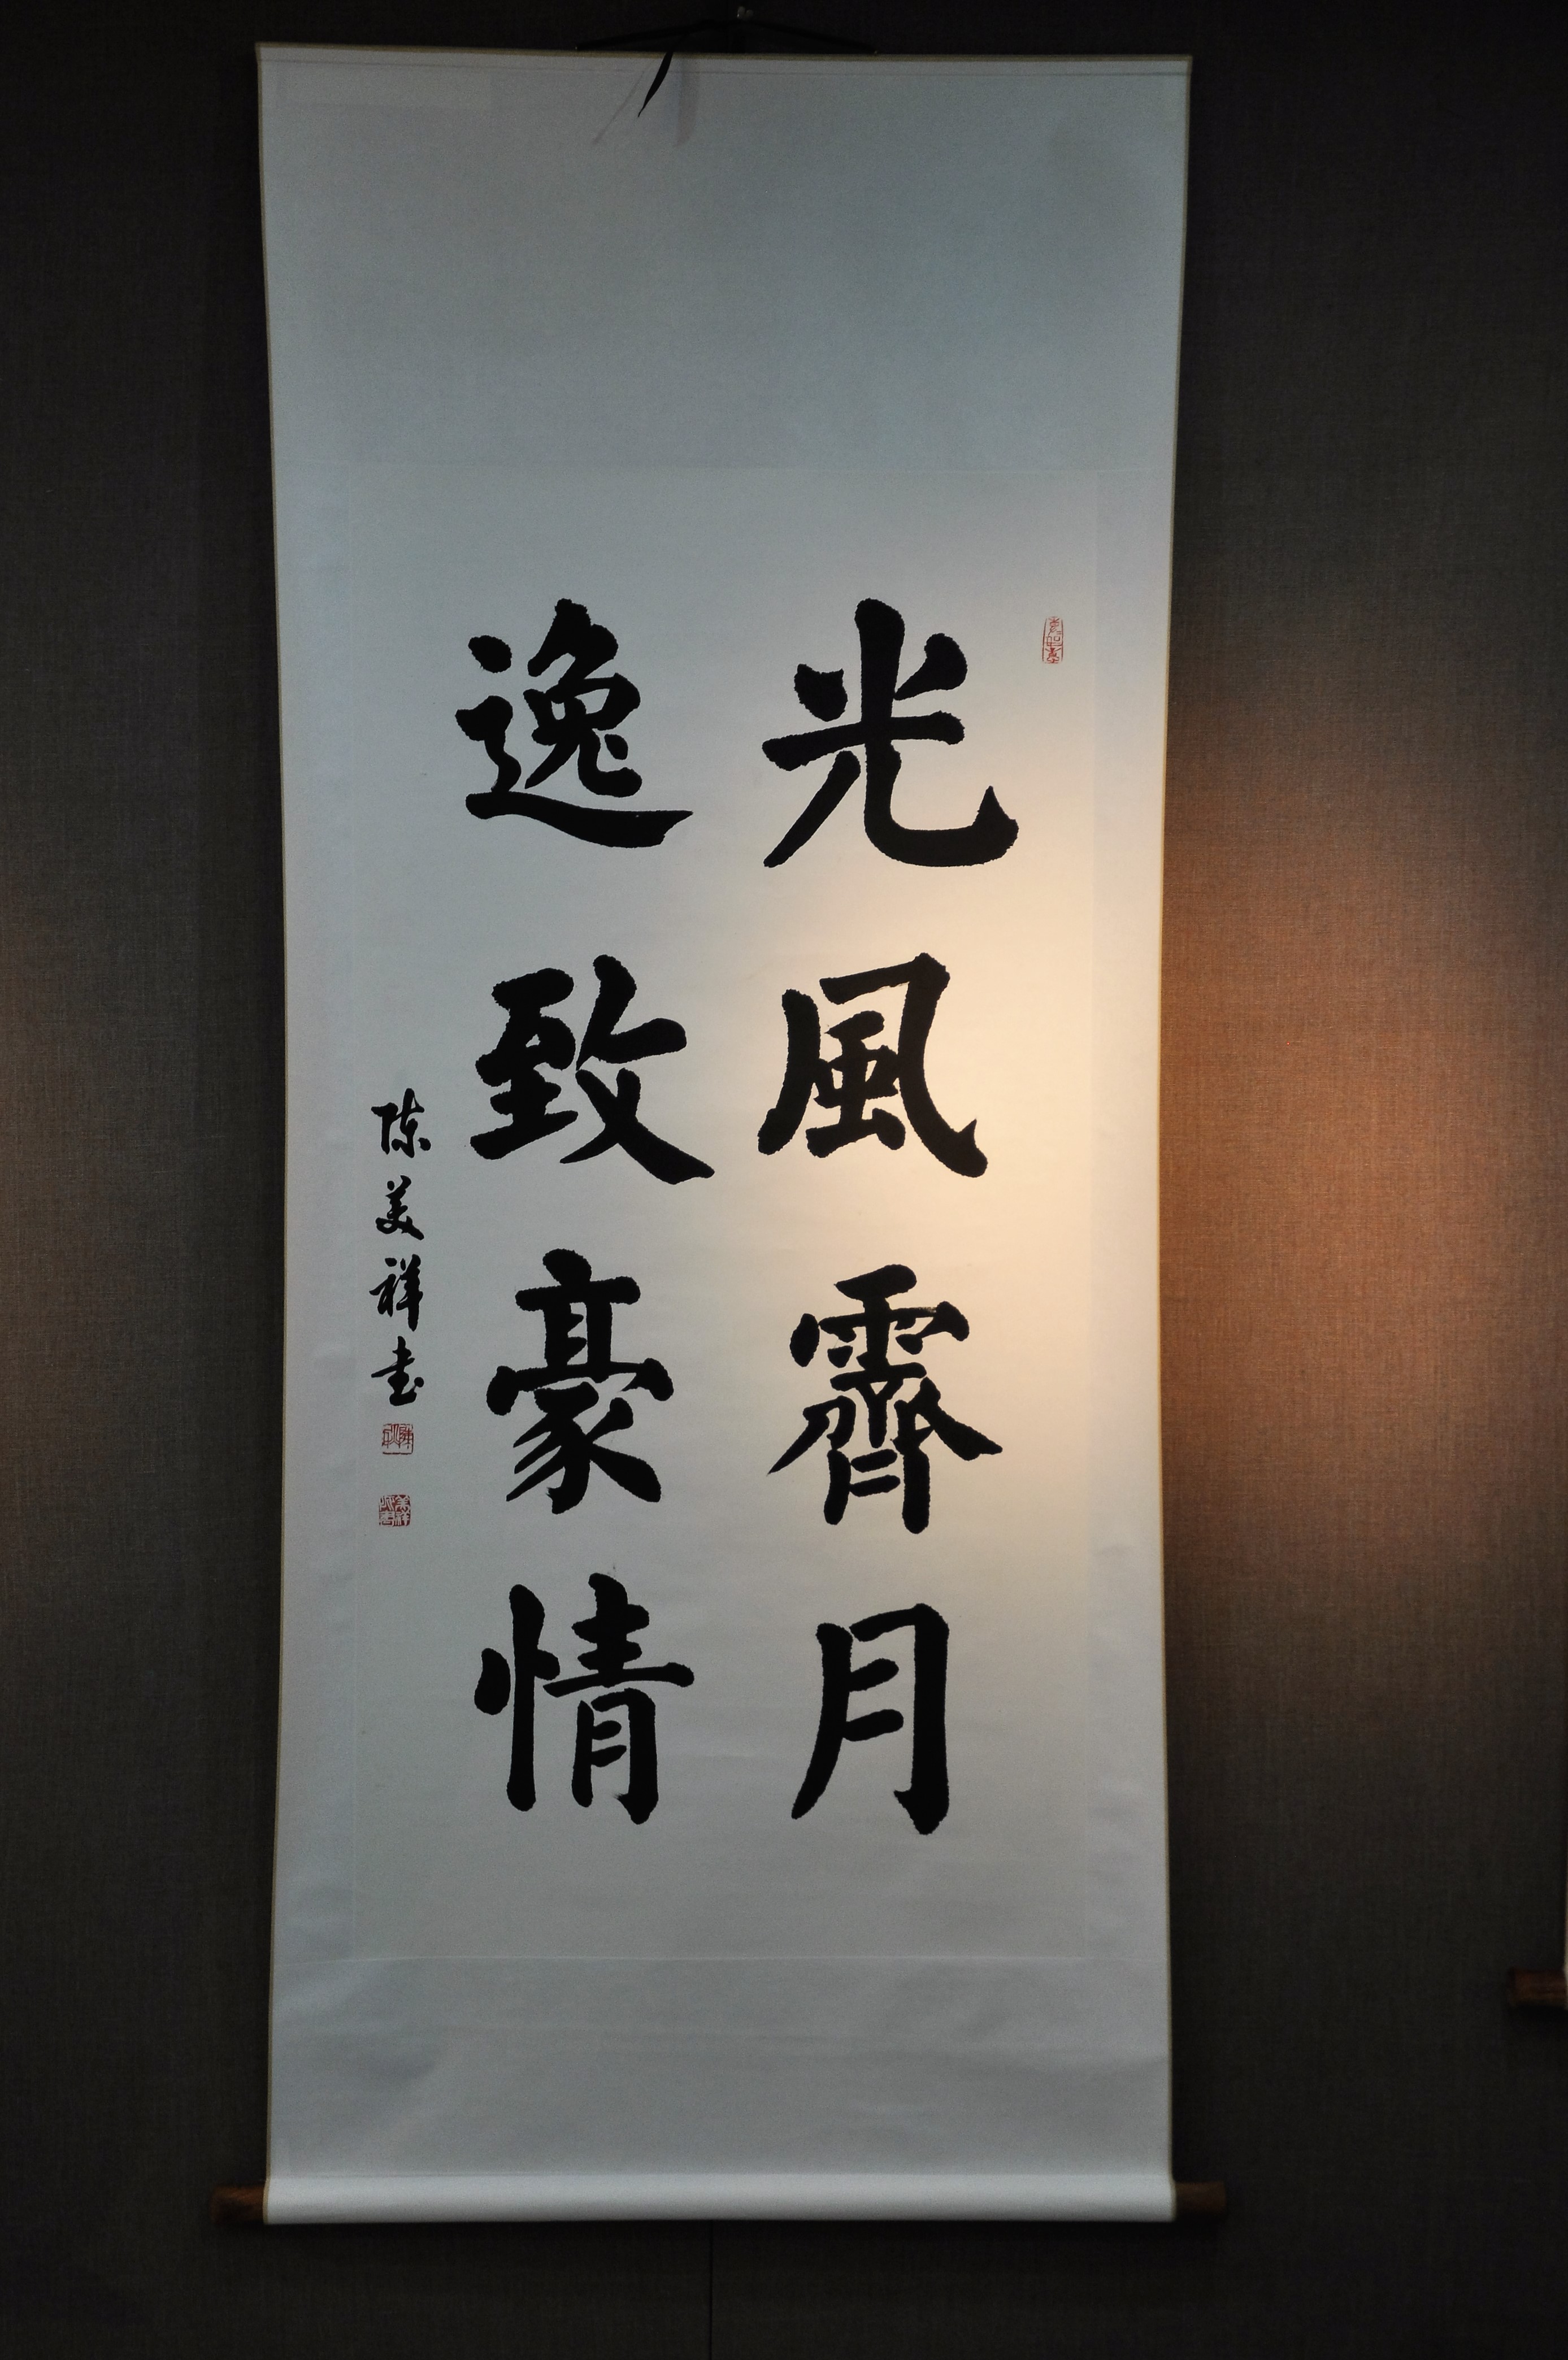 光風霽月
逸致豪情
陈美祥书